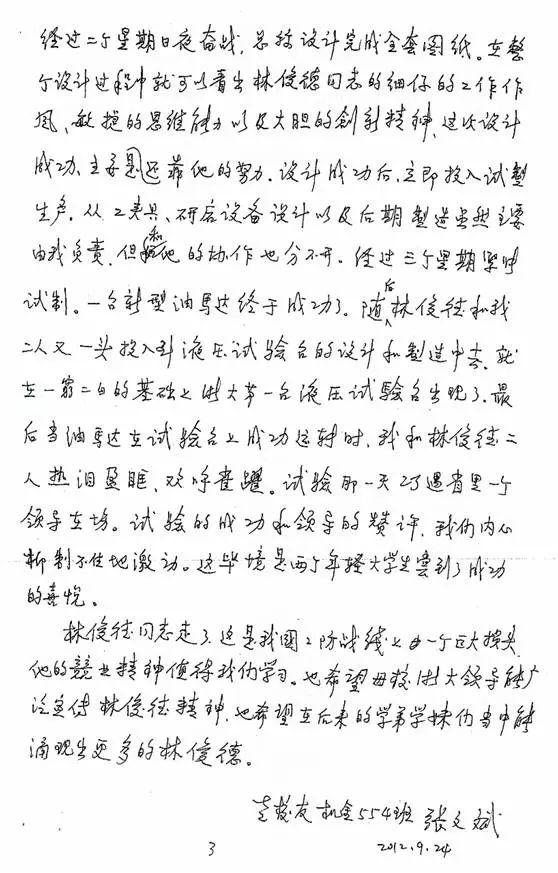 经过二个星期日夜奋战，总标设计完成全套图纸。在整
个设计过程中就可以看出林俊德同志的细仔的工作作
风、敏捷的思维能力以及大胆的創新精神，这次设计
成功，主要是还靠他的努力。设计成功后，立即投入试製
生产。从工夹具、研磨设备设计以及后期製造虽然主要
由我负责，但和他的协作也分不开。经过三个星期紧张
试制。一台新型油馬达终于成功了。随后林俊德和我
二人又一头投入到液压试验台的设计和製造中去，就
在一窮二白的基础上浙大第一台液压试验台出现了。最
后当油馬达在试验台上成功运转时，我和林俊德二
人热泪盈眶，欢呼雀躍。试验那一天巧遇省里一个
领导在场。试验的成功和领导的赞许，我们内心
抑制不住地激动。这毕境是两个年轻大学生尝到了成功
的喜悦。
林俊德同志走了，这是我國防战线上一个巨大损失
他的競业精神值得我们学习。也希望母校浙大领导能广
泛宣传林俊德精神，也希望在后来的学弟学妹们当中能
涌现出更多的林俊德。
老校友 机金554班 张文斌
3 2012.9.24